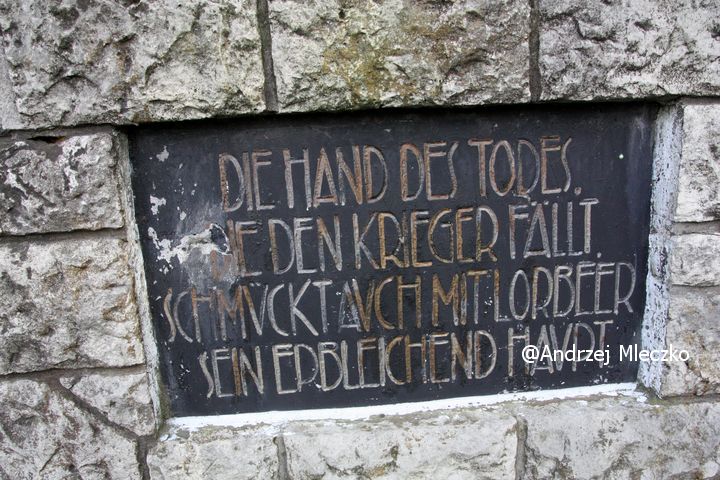 DIE HAND DES TODES,
DIE DEN KRIEGER FÄLLT,
SCHMVCKT AVCH MIT LORBEER
SEIN ERBLEICHEND HAVPT
@Andrzej Mleczko